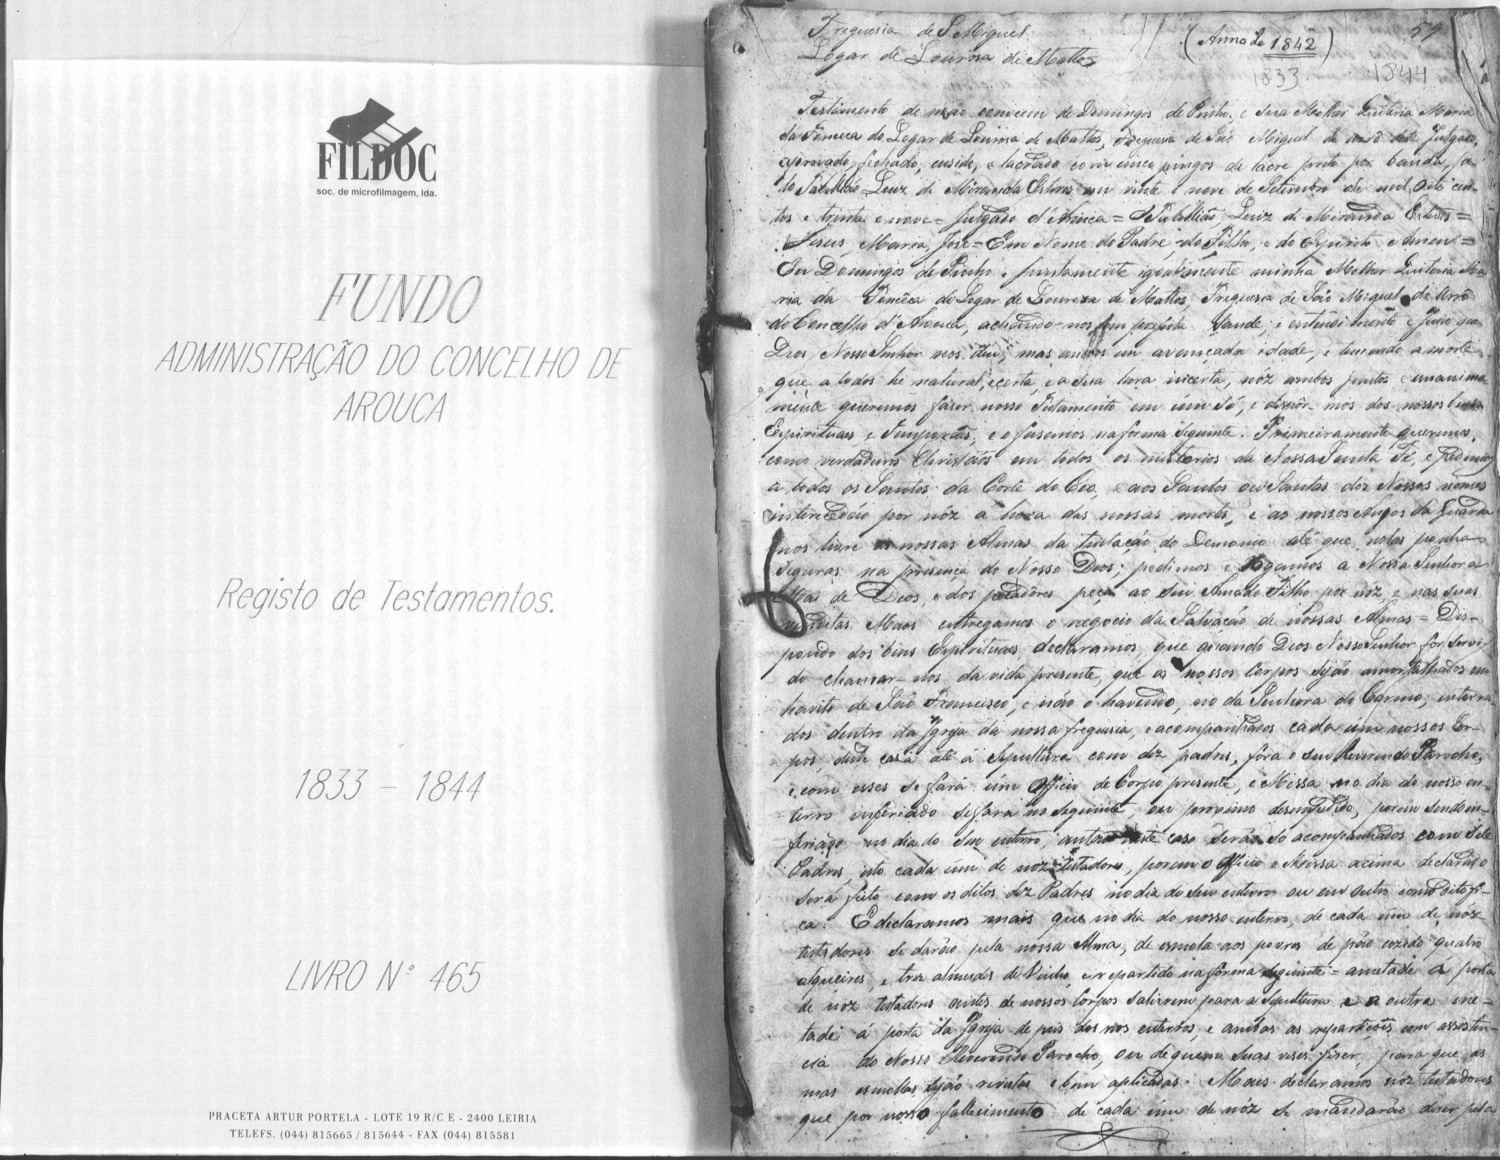 FILDOC
soc. de microfilmagem, lda.
FUNDO
ADMINISTRAÇÃO DO CONCELHO DE
AROUCA
Registo de Testamentos.
1833 - 1844
LIVRO Nº 465
PRACETA ARTUR PORTELA - LOTE 19 R/C E - 2400 LEIRIA
TELEFS. (044) 815665 / 815644 - FAX (044) 815581
Freguesia de S Miguel
Logar de Lourosa de Mattos
(Anno de 1842)
59
1833
1844
Testamento de mão comum de Domingos de Pinho, e sua Molher Quiteria Maria
da Fonceca do Logar de Lourosa de Mattos, Freguesia de São Miguel de deste Julgado,
aprovado, fechado, cusido, e lacrado com cinco pingos de lacre preto por banda, 
lo Tabalião Luiz de Miranda Esteves em vinte e nove de Setembro de mil oito cen-
tos e trinta e nove = Julgado d'Arouca = O Tabellião, Luiz de Miranda Esteves =
Jesus, Maria, José = Em Nome do Padre, do Filho, e do Espirito e Amen =
Eu Domingos de Pinho e juntamente igualmente minha Molher Quiteria Ma
ria da Fonceca do Logar de Loureza de Mattos Freguesia de São Miguel de Urrô
do Concelho d'Arouca, achando-nos em perfeita saude, e entendimento e Juizo que
Deos Nosso Senhor nos deu, mas ambos em avançada idade, e temendo a morte
que a todos he natural, e certa, e a sua hora incerta, nóz ambos juntos e unanima
mente queremos fazer nosso Testamento em um só, e dispôr-mos dos nossos bens
Espirituaes e Temporaes, e o fasemos na forma seguinte. Primeiramente queremos,
como verdadeiros Christãos em todos os misterios da Nossa Santa Fé, e pedimos
a todos os Santos da Corte do Ceo, e aos Santos ou Santas dos Nossos nomes
intercedão por nóz a hora das nossas mortes, e ao nossos Anjos da Guarda
nos livre as nossas Almas da tentação do Demonio até que nolas ponhão
seguras na presença do Nosso Deos; pedimos e rogamos a Nossa Senhora
Mai de Deos, e dos pecadores peça ao seu Amado Filho por nóz, e nas suas
Maos entregamos o negocio da Salvação de nossas Almas = Dis-
pondo dos bens Espirituaes declaramos, que quando Deos Nosso Senhor for servi
do chamar-nos da vida presente, que os nossos Corpos sejão amortalhados em
havito de São Francisco, e não o havendo, no da Senhora do Carmo; interra
dos dentro da Igreja da nossa freguesia, e acompanhados cada um nossos Cor-
pos, desde casa até á Sepultura com dez padres, fóra o seu Reverendo Parocho,
e com esses se fará um Officio de Corpo presente, e Missa no dia do nosso en-
terro se fara no seguinte, ou proximo desempedido, porem sendo en-
no dia do seu enterro, neste caso serão só acompanhados com sete
Padres, isto cada um de noz Testadores, porem o Officio e Missa acima declarado
será feito com os ditos dez Padres no dia do seu enterro ou em outro como dito fi-
ca. E declaramos mais que no dia do nosso enterro, de cada um de nóz
testadores se darão pela nossa Alma, de esmola aos povres de pão cozido quatro
alqueires, e tres almudes de Vinho, e repartido na fórma seguinte = ametade á porta
de noz testadores antes de nossos Corpos sahirem para a Sepultura e a outra me-
tade á porta da Igreja depois dos nos enterros, e ambas as repartições com assisten-
cia do Nosso Reverendo Parocho, ou de quem suas vezes fizer, para que as
mas esmollas sejão e bem aplicadas. Mais declaramos nóz testadores
que por nosso fallecimento de cada um de nóz se mandarão diser pela